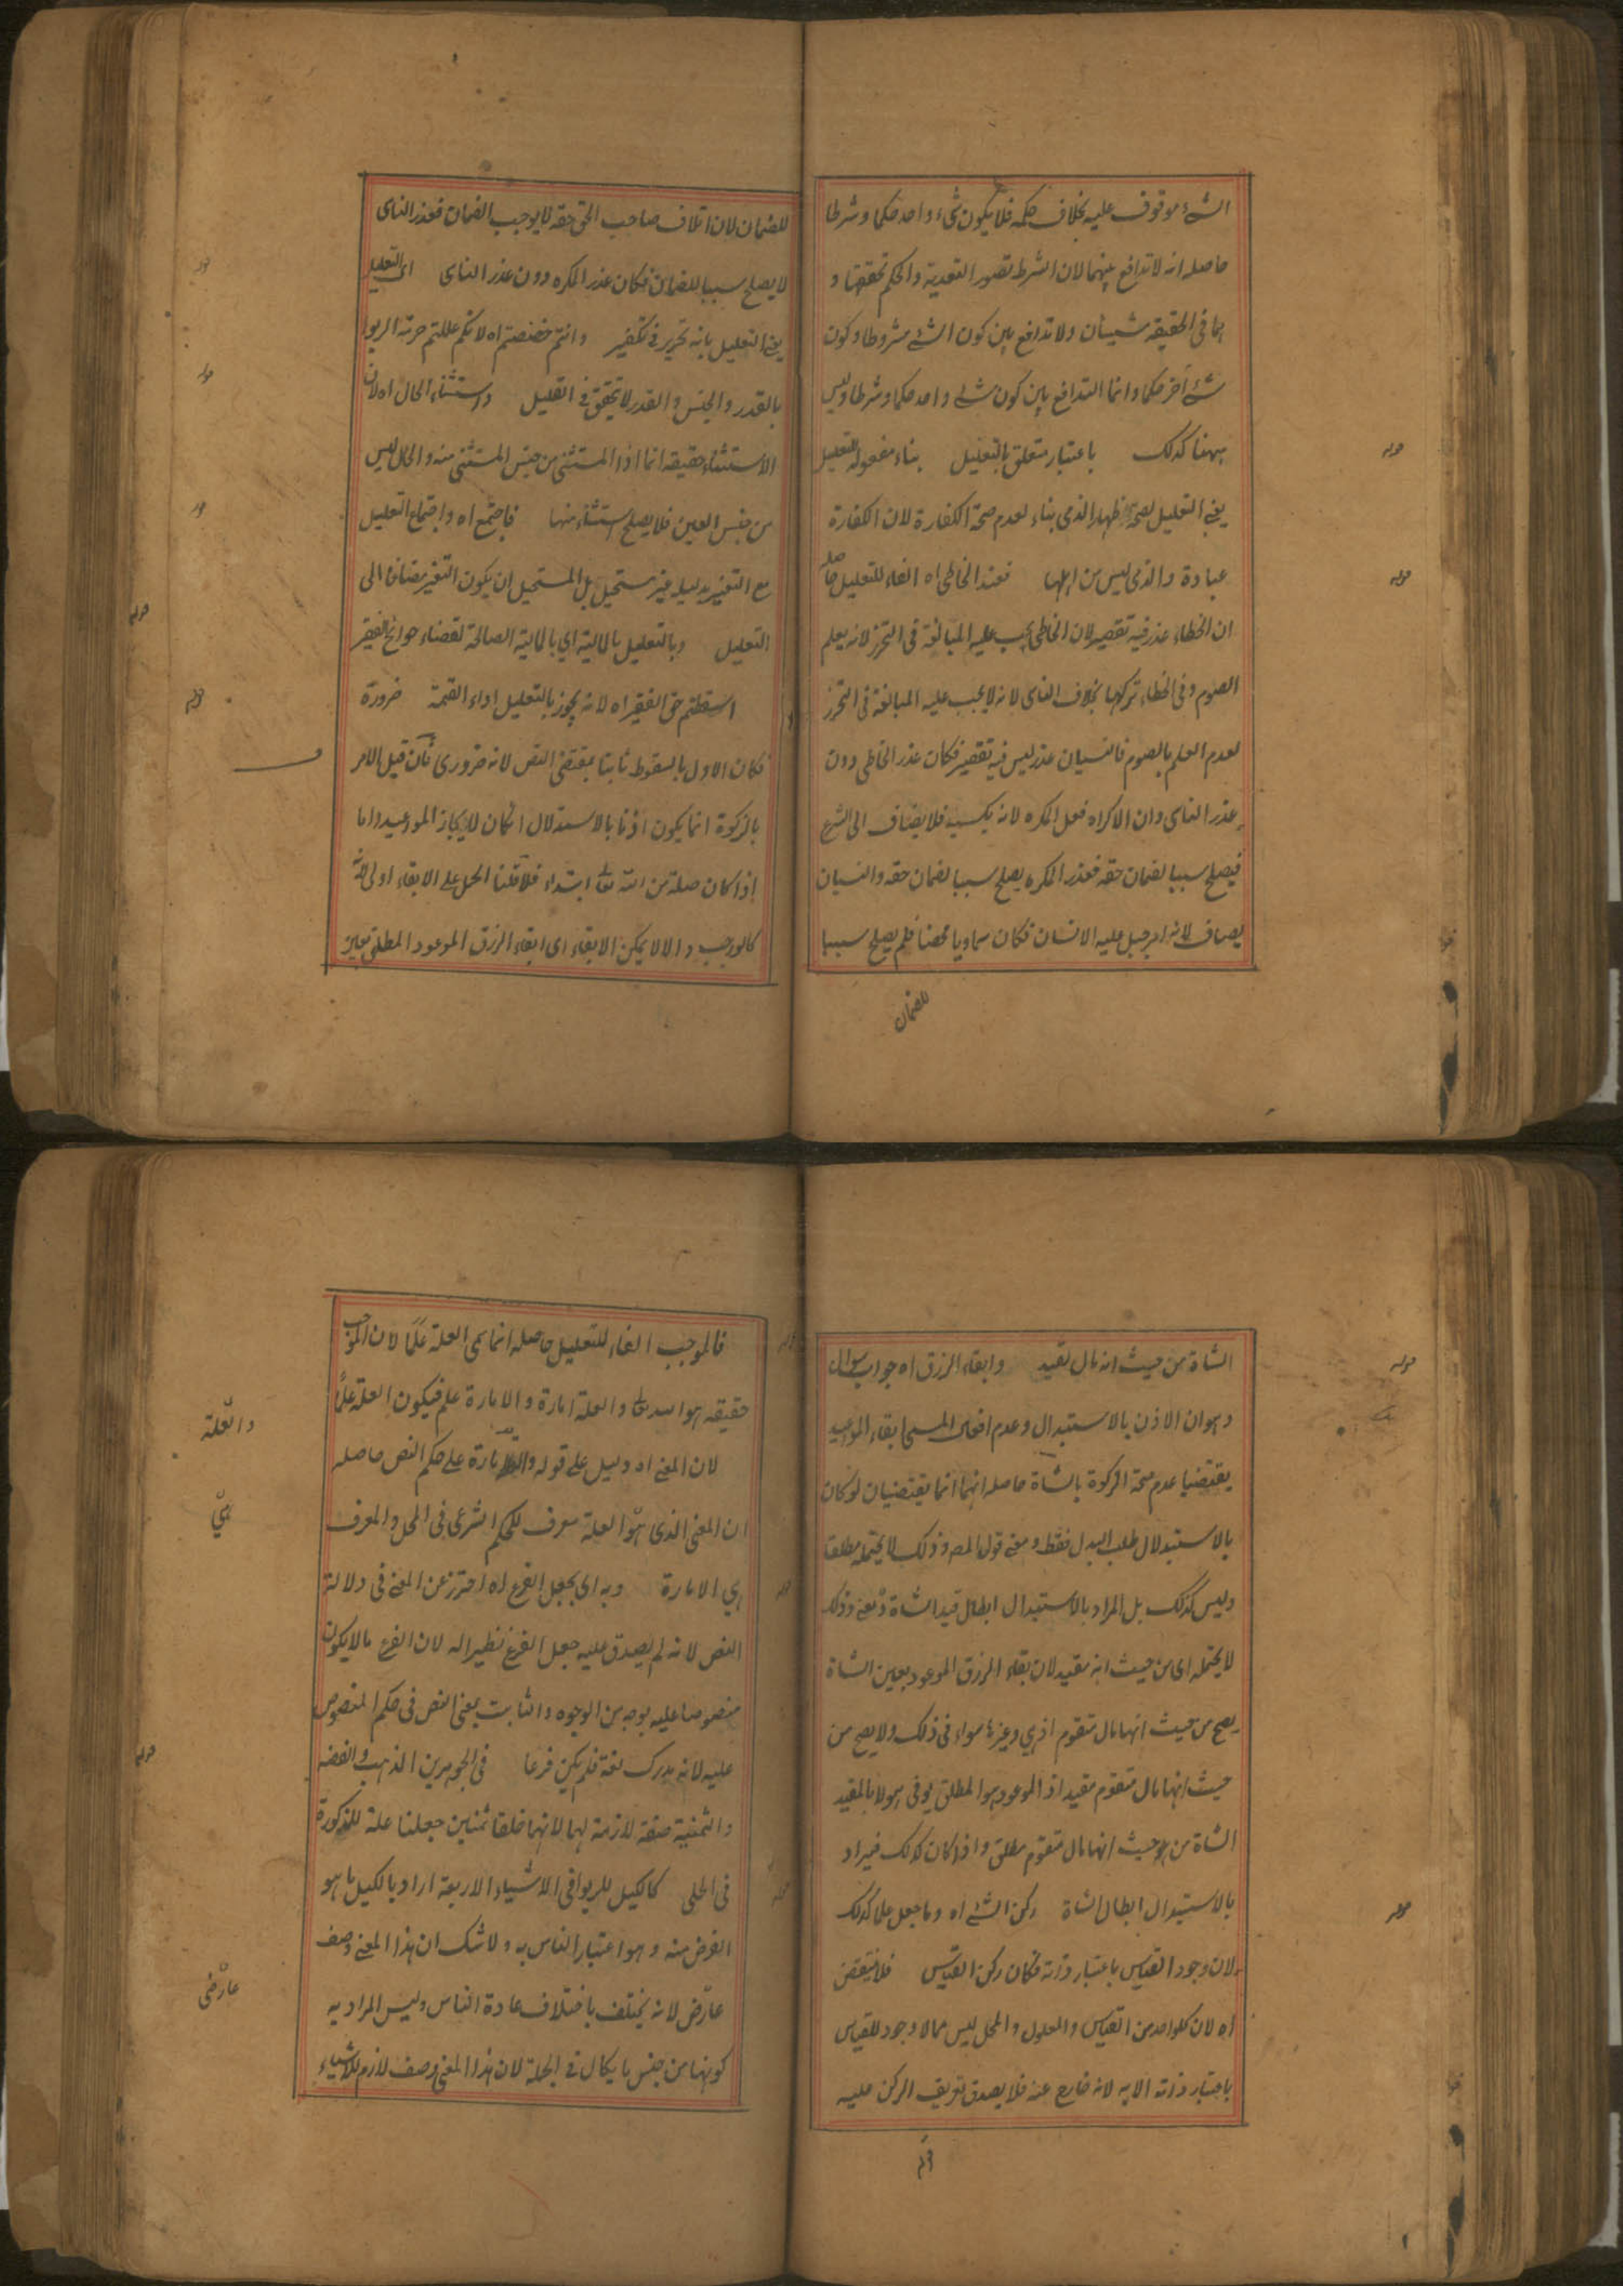 الشئ موقوف عليه بخلاف حكمه فلا يكون شئ واحد حكما وشرطا
حاصله انه لا تدافع بينهما لان الشرط تصور التعدية والحكم تحققها و
هما فى الحقيقة شيئان ولا تدافع بين كون الشئ مشروطا وكون
شئ آخر حكما وانما التدافع بين كون شئ واحد حكما وشرطا وليس
ههنا كذلك باعتبار متعلق بالتعليل بناء مفعول للتعليل
قوله
يعنى التعليل لصحة ظهار الذمى بناء لعدم صحة الكفارة لان الكفارة
عبادة والذمى ليس من اهلها فعند الخاطى اه الفاء للتعليل حاصله
قوله
ان الخطاء عذر فيه تقصير لان الخاطى يجب عليه المبالغة فى التحرز لانه يعلم
الصوم وفى الخطاء تركها بخلاف الناسى لانه لا يجب عليه المبالغة فى التحرز
لعدم العلم بالصوم فالنسيان عذر ليس فيه تقصير فكان عذر الخاطى دون
عذر الناسى وان الاكراه فعل المكره لانه يكسبه فلا يضاف الى الشرع
فيصلح سببا لضمان حقه فعذر المكره يصلح سببا لضمان حقه والنسيان
يضاف لانه امر جبل عليه الانسان فكان سماويا محضا فلم يصلح سببا
للضمان
للضمان لان اتلاف صاحب الحق حقه لا يوجب الضمان فعذر الناسى
لا يصلح سببا للضمان فكان عذر المكره دون عذر الناسى اى التعليل
قوله
يعنى التعليل بانه تحرير فى تكفير وانتم خصصتم اه لانكم عللتم حرمة الربوا
قوله
بالقدر والجنس والقدر لا يتحقق فى القليل واستثناء الحال اه لان
الاستثناء حقيقة انما اذا المستثنى من جنس المستثنى منه والحال ليس
من جنس العين فلا يصلح استثناء منها فاجتمع اه واجتماع التعليل
قوله
مع التغيير بدليله غير مستحيل بل المستحيل ان يكون التغير مضافا الى
التعليل وبالتعليل بالمالية اى بالمالية الصالحة لقضاء حوائج الفقير
قوله
اسقطتم حق الفقير اه لانه يجوز بالتعليل اداء القيمة ضرورة
قوله
فكان الاول بالسقوط ثابتا بمقتضى النص لانه ضرورى فان قيل الامر
بالزكوة انما يكون اذنا بالاستبدال ان كان لانجاز المواعيد واما
اذا كان صلة من الله تعالى ابتداء فلا قلنا الحمل على الابقاء اولى لانه
كالواجب والا لا يمكن الابقاء اى ابقاء الرزق الموعود المطلق بعين
الشاة من حيث انه مال تقيد وابقاء الرزق اه جواب سوال
قوله
وهو ان الاذن بالاستبدال وعدم افعال المسمى ابقاء المواعيد
يقتضيا عدم صحة الزكوة بالشاة حاصله انهما انما يقتضيان لو كان
بالاستبدال طلب البدل فقط ومعنى قول المص وذلك لا يحتمله مطلقا
وليس كذلك بل المراد بالاستبدال ابطال قيد الشاة ومعنى وذلك
لا يحتمله اى من حيث انه مقيد لان بقاء الرزق الموعود بعين الشاة
يصح من حيث انها مال متقوم اذ هى وغيرها سواء فى ذلك ولا يصح من
حيث انها مال متقوم مقيد اذ الموعود هو المطلق يوفى به لا بالمقيد
الشاة من حيث انها مال متقوم مطلق واذا كان كذلك فيراد
بالاستبدال ابطال الشاة ركن الشئ اه وما جعل علما كذلك
قوله
لان وجود القياس باعتبار ذاته فكان ركن القياس فلا ينتقض
اه لان كلواحد من القياس والمعلول والمحل ليس مما لا وجود للقياس
باعتبار ذاته الا به لانه خارج عنه فلا يصدق تعريف الركن عليه
فالموجب الفاء للتعليل حاصله انما سمى العلة علما لان الموجب
حقيقة هو الله تعالى والعلة امارة والامارة علم فيكون العلة علما
والعلة
لان المعنى اه دليل على قوله والامارة على حكم النص حاصله
ان المعنى الذى هو العلة معرف للحكم الشرعى فى المحل والمعرف
هى
هى الامارة وبه اى بجعل الفرع اه احترز عن المعنى فى دلالة
النص لانه لم يصدق عليه جعل الفرع نظيرا له لان الفرع مالا يكون
منصوصا عليه بوجه من الوجوه والثابت بمعنى النص فى حكم المنصوص
عليه لانه يدرك لغة فلم يكن فرعا فى الجوهرين الذهب والفضة
قوله
والثمنية صفة لازمة لهما لانهما خلقا ثمنين جعلنا علة للزكوة
فى الحلى كالكيل للربوا فى الاشياء الاربعة اراد بالكيل ما هو
الغرض منه وهو اعتبار الناس به ولا شك ان هذا المعنى وصف
عارض لانه يختلف باختلاف عادة الناس وليس المراد به
عارضى
كونها من جنس ما يكال فى الجملة لان هذا المعنى وصف لازم للاشياء